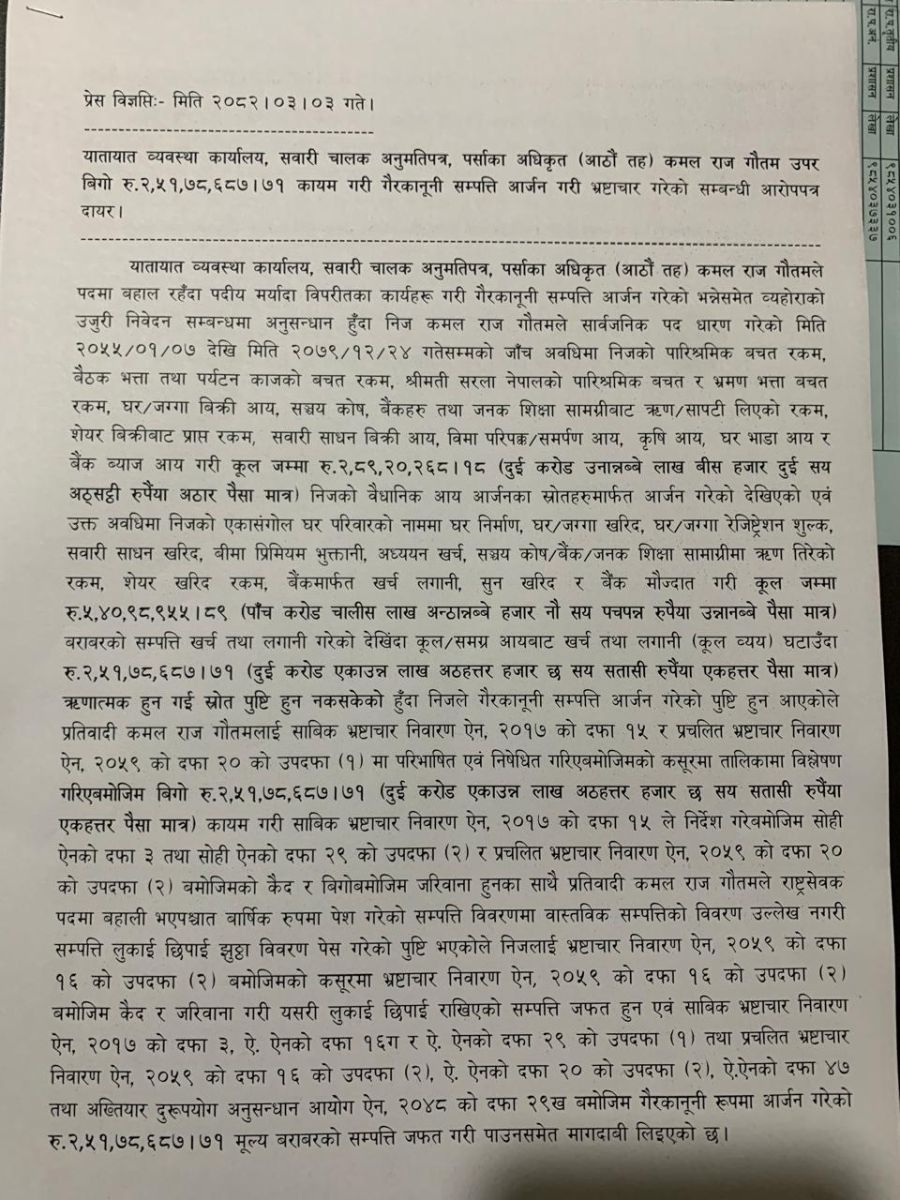 प्रेस विज्ञप्तिः- मिति २०८२।०३।०३ गते।
यातायात व्यवस्था कार्यालय, सवारी चालक अनुमतिपत्र, पर्साका अधिकृत (आठौं तह) कमल राज गौतम उपर
बिगो रु.२,५१,७८,६८७।७१ कायम गरी गैरकानूनी सम्पत्ति आर्जन गरी भ्रष्टाचार गरेको सम्बन्धी आरोपपत्र
दायर।
यातायात व्यवस्था कार्यालय, सवारी चालक अनुमतिपत्र, पर्साका अधिकृत (आठौं तह) कमल राज गौतमले
पदमा बहाल रहँदा पदीय मर्यादा विपरीतका कार्यहरू गरी गैरकानूनी सम्पत्ति आर्जन गरेको भन्नेसमेत व्यहोराको
उजुरी निवेदन सम्बन्धमा अनुसन्धान हुँदा निज कमल राज गौतमले सार्वजनिक पद धारण गरेको मिति
२०५५/०१/०७ देखि मिति २०७९/१२/२४ गतेसम्मको जाँच अवधिमा निजको पारिश्रमिक बचत रकम,
बैठक भत्ता तथा पर्यटन काजको बचत रकम, श्रीमती सरला नेपालको पारिश्रमिक बचत र भ्रमण भत्ता बचत
रकम, घर/जग्गा बिक्री आय, सञ्चय कोष, बैंकहरु तथा जनक शिक्षा सामग्रीबाट ऋण/सापटी लिएको रकम,
शेयर बिक्रीबाट प्राप्त रकम, सवारी साधन बिक्री आय, विमा परिपक्क/समर्पण आय, कृषि आय, घर भाडा आय र
बैंक ब्याज आय गरी कूल जम्मा रु.२,८९,२०,२६८।१८ (दुई करोड उनान्नब्बे लाख बीस हजार दुई सय
अठ्सट्ठी रुपैंया अठार पैसा मात्र) निजको वैधानिक आय आर्जनका स्रोतहरुमार्फत आर्जन गरेको देखिएको एवं
उक्त अवधिमा निजको एकासंगोल घर परिवारको नाममा घर निर्माण, घर/जग्गा खरिद, घर/जग्गा रेजिष्ट्रेशन शुल्क,
सवारी साधन खरिद, बीमा प्रिमियम भुक्तानी, अध्ययन खर्च, सञ्चय कोष/बैंक/जनक शिक्षा सामाग्रीमा ऋण तिरेको
रकम, शेयर खरिद रकम, बैंकमार्फत खर्च लगानी, सुन खरिद र बैंक मौज्दात गरी कूल जम्मा
रु.५,४०,९८,९५५।८९ (पाँच करोड चालीस लाख अन्ठान्नब्बे हजार नौ सय पचपन्न रुपैया उन्नानब्बे पैसा मात्र)
बराबरको सम्पत्ति खर्च तथा लगानी गरेको देखिंदा कूल/समग्र आयबाट खर्च तथा लगानी (कूल व्यय) घटाउँदा
रु.२,५१,७८,६८७।७१ (दुई करोड एकाउन्न लाख अठहत्तर हजार छ सय सतासी रुपैंया एकहत्तर पैसा मात्र)
ऋणात्मक हुन गई स्रोत पुष्टि हुन नकसकेको हुँदा निजले गैरकानूनी सम्पत्ति आर्जन गरेको पुष्टि हुन आएकोले
प्रतिवादी कमल राज गौतमलाई साबिक भ्रष्टाचार निवारण ऐन, २०१७ को दफा १५ र प्रचलित भ्रष्टाचार निवारण
ऐन, २०५९ को दफा २० को उपदफा (१) मा परिभाषित एवं निषेधित गरिएबमोजिमको कसूरमा तालिकामा विश्लेषण
गरिएबमोजिम बिगो रु.२,५१,७८,६८७।७१ (दुई करोड एकाउन्न लाख अठहत्तर हजार छ सय सतासी रुपैंया
एकहत्तर पैसा मात्र) कायम गरी साबिक भ्रष्टाचार निवारण ऐन, २०१७ को दफा १५ ले निर्देश गरेबमोजिम सोही
ऐनको दफा ३ तथा सोही ऐनको दफा २९ को उपदफा (२) र प्रचलित भ्रष्टाचार निवारण ऐन, २०५९ को दफा २०
को उपदफा (२) बमोजिमको कैद र बिगोबमोजिम जरिवाना हुनका साथै प्रतिवादी कमल राज गौतमले राष्ट्रसेवक
पदमा बहाली भएपश्चात बार्षिक रुपमा पेश गरेको सम्पत्ति विवरणमा वास्तविक सम्पत्तिको विवरण उल्लेख नगरी
सम्पत्ति लुकाई छिपाई झुठ्ठा विवरण पेस गरेको पुष्टि भएकोले निजलाई भ्रष्टाचार निवारण ऐन, २०५९ को दफा
१६ को उपदफा (२) बमोजिमको कसूरमा भ्रष्टाचार निवारण ऐन, २०५९ को दफा १६ को उपदफा (२)
बमोजिम कैद र जरिवाना गरी यसरी लुकाई छिपाई राखिएको सम्पत्ति जफत हुन एवं साबिक भ्रष्टाचार निवारण
ऐन, २०१७ को दफा ३, ऐ. ऐनको दफा १६ग र ऐ. ऐनको दफा २९ को उपदफा (१) तथा प्रचलित भ्रष्टाचार
निवारण ऐन, २०५९ को दफा १६ को उपदफा (२), ऐ. ऐनको दफा २० को उपदफा (२), ऐ.ऐनको दफा ४७
तथा अख्तियार दुरूपयोग अनुसन्धान आयोग ऐन, २०४८ को दफा २९ख बमोजिम गैरकानूनी रूपमा आर्जन गरेको
रु.२,५१,७८,६८७।७१ मूल्य बराबरको सम्पत्ति जफत गरी पाउनसमेत मागदाबी लिइएको छ।
रा.प.तृतीय प्रशासन लेखा
रा.प.अनं. प्रशासन लेखा